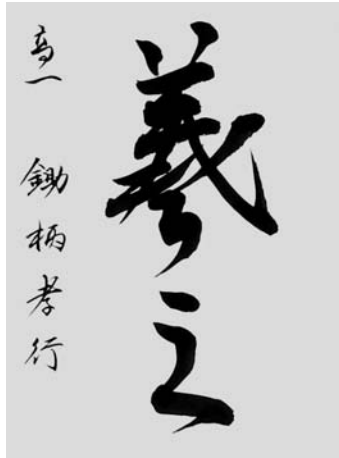 羲之
高一 鋤柄孝行